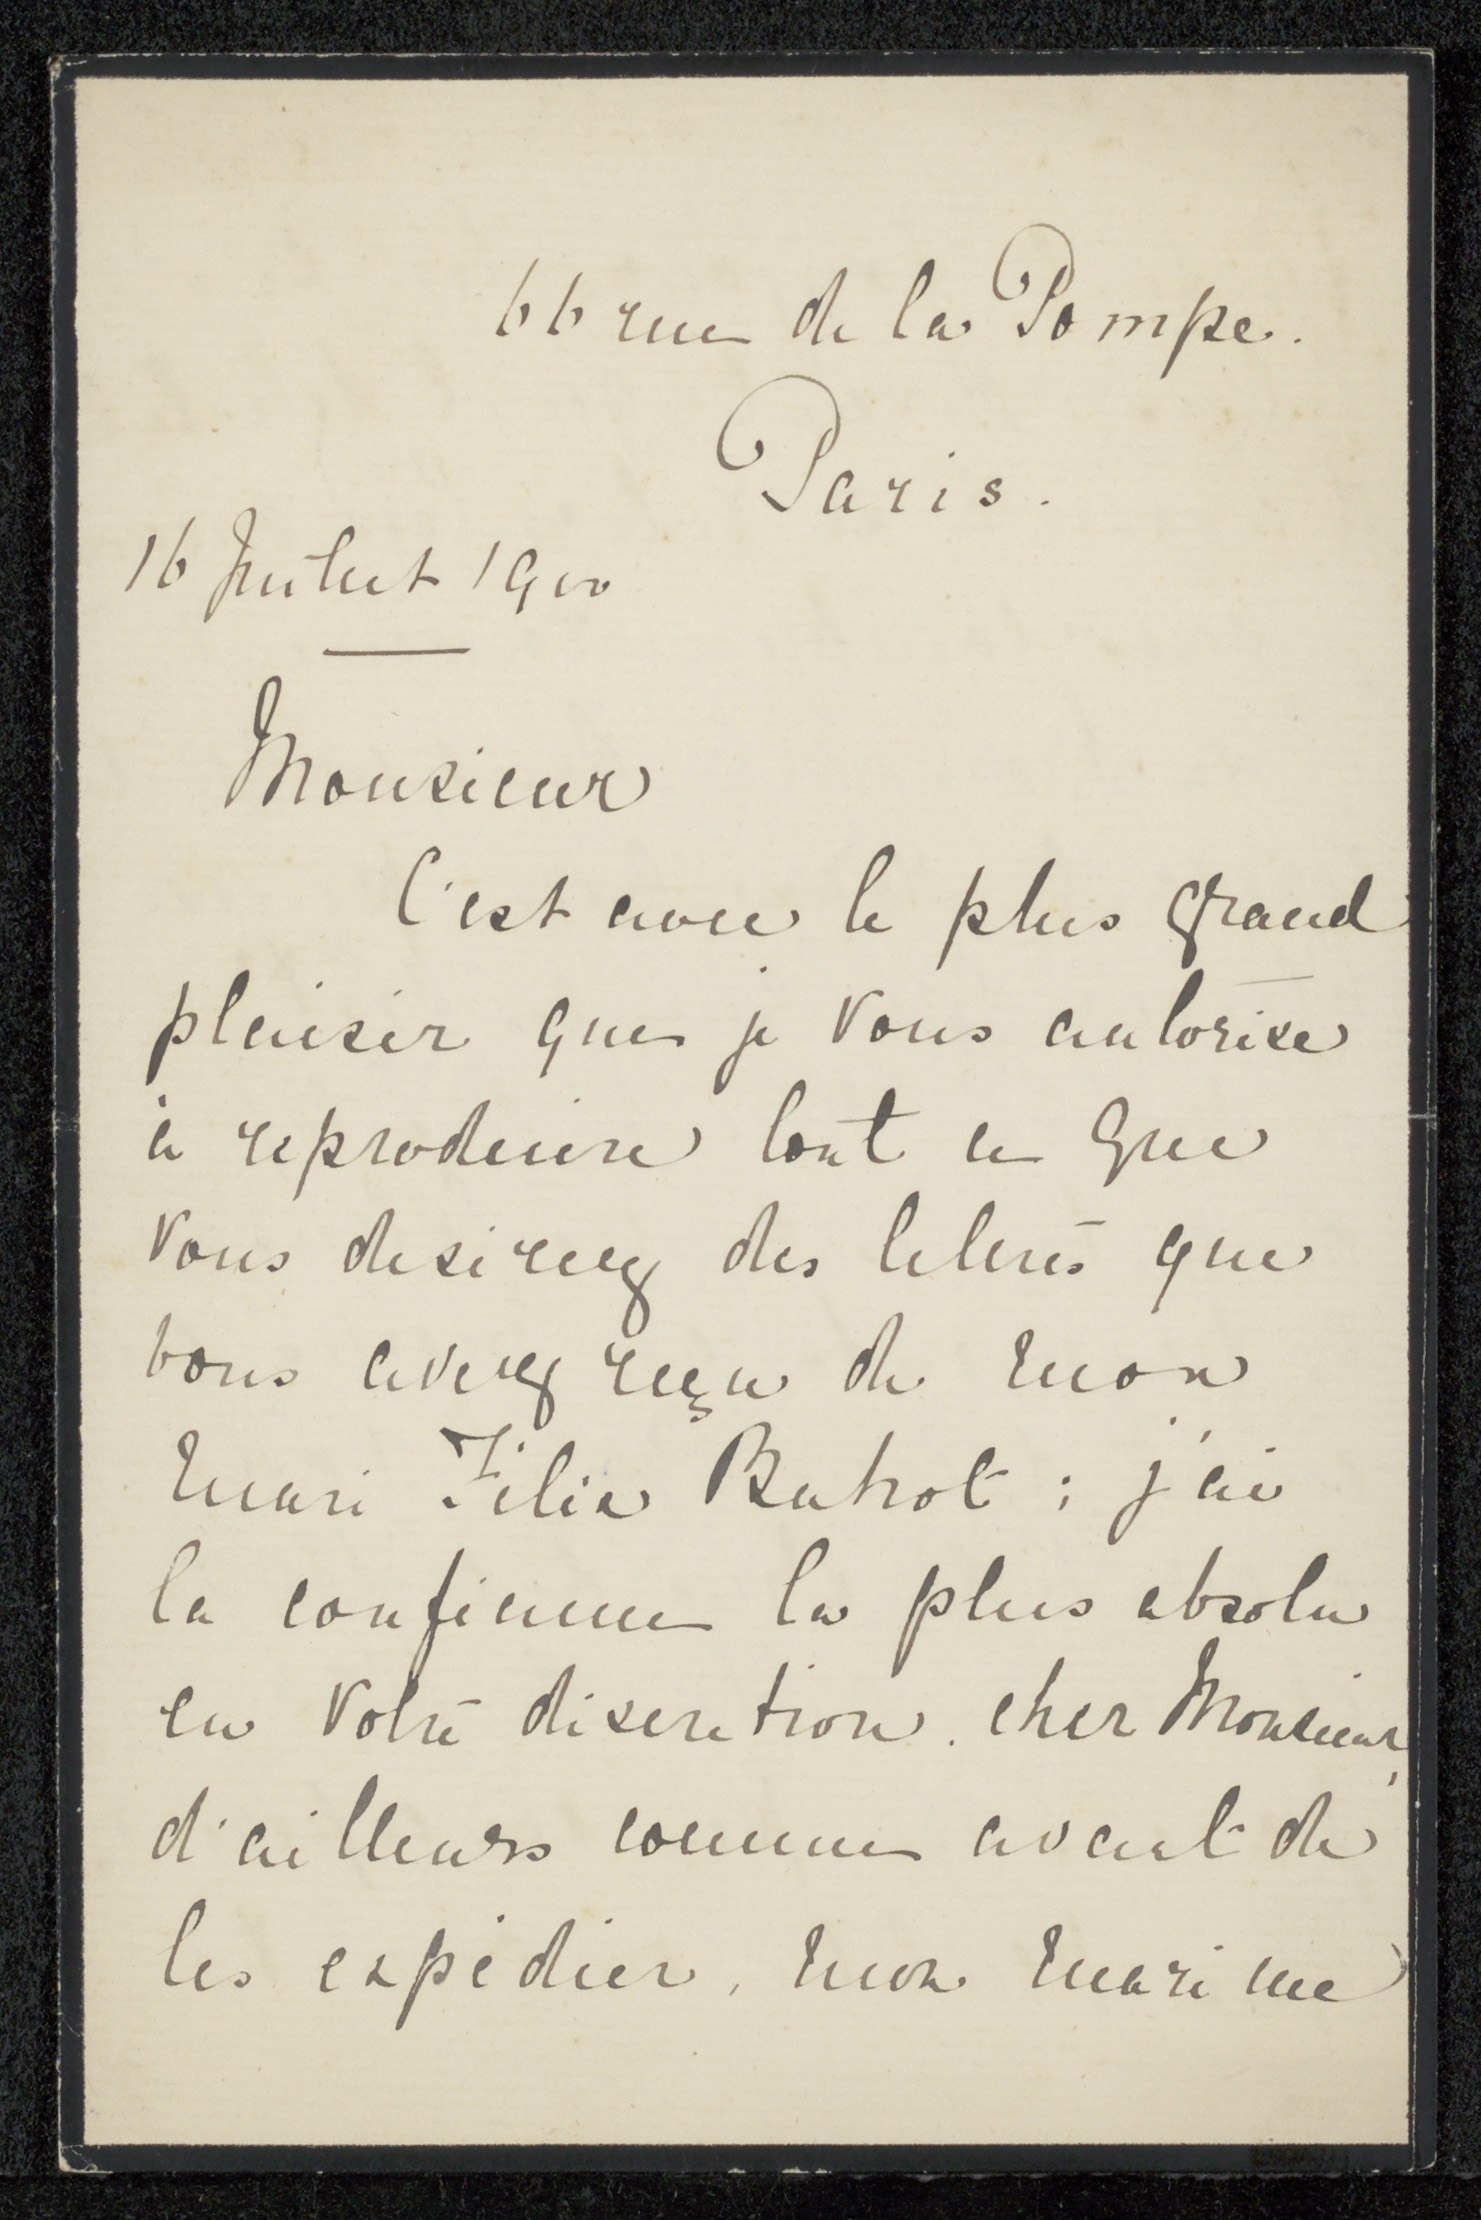 66 rue de la Pompe.
Paris.
16 Juillet 1900
Monsieur
C'est avec le plus grand
plaisir que je vous autorise
à reproduire tout ce que
vous desirez des lettres que
vous avez reçu de mon
mari Félix Buhot ; j'ai
la confiance la plus absolu
en votre discretion. cher Monsieur,
d'ailleurs comme avant de
les expédier, mon mari me